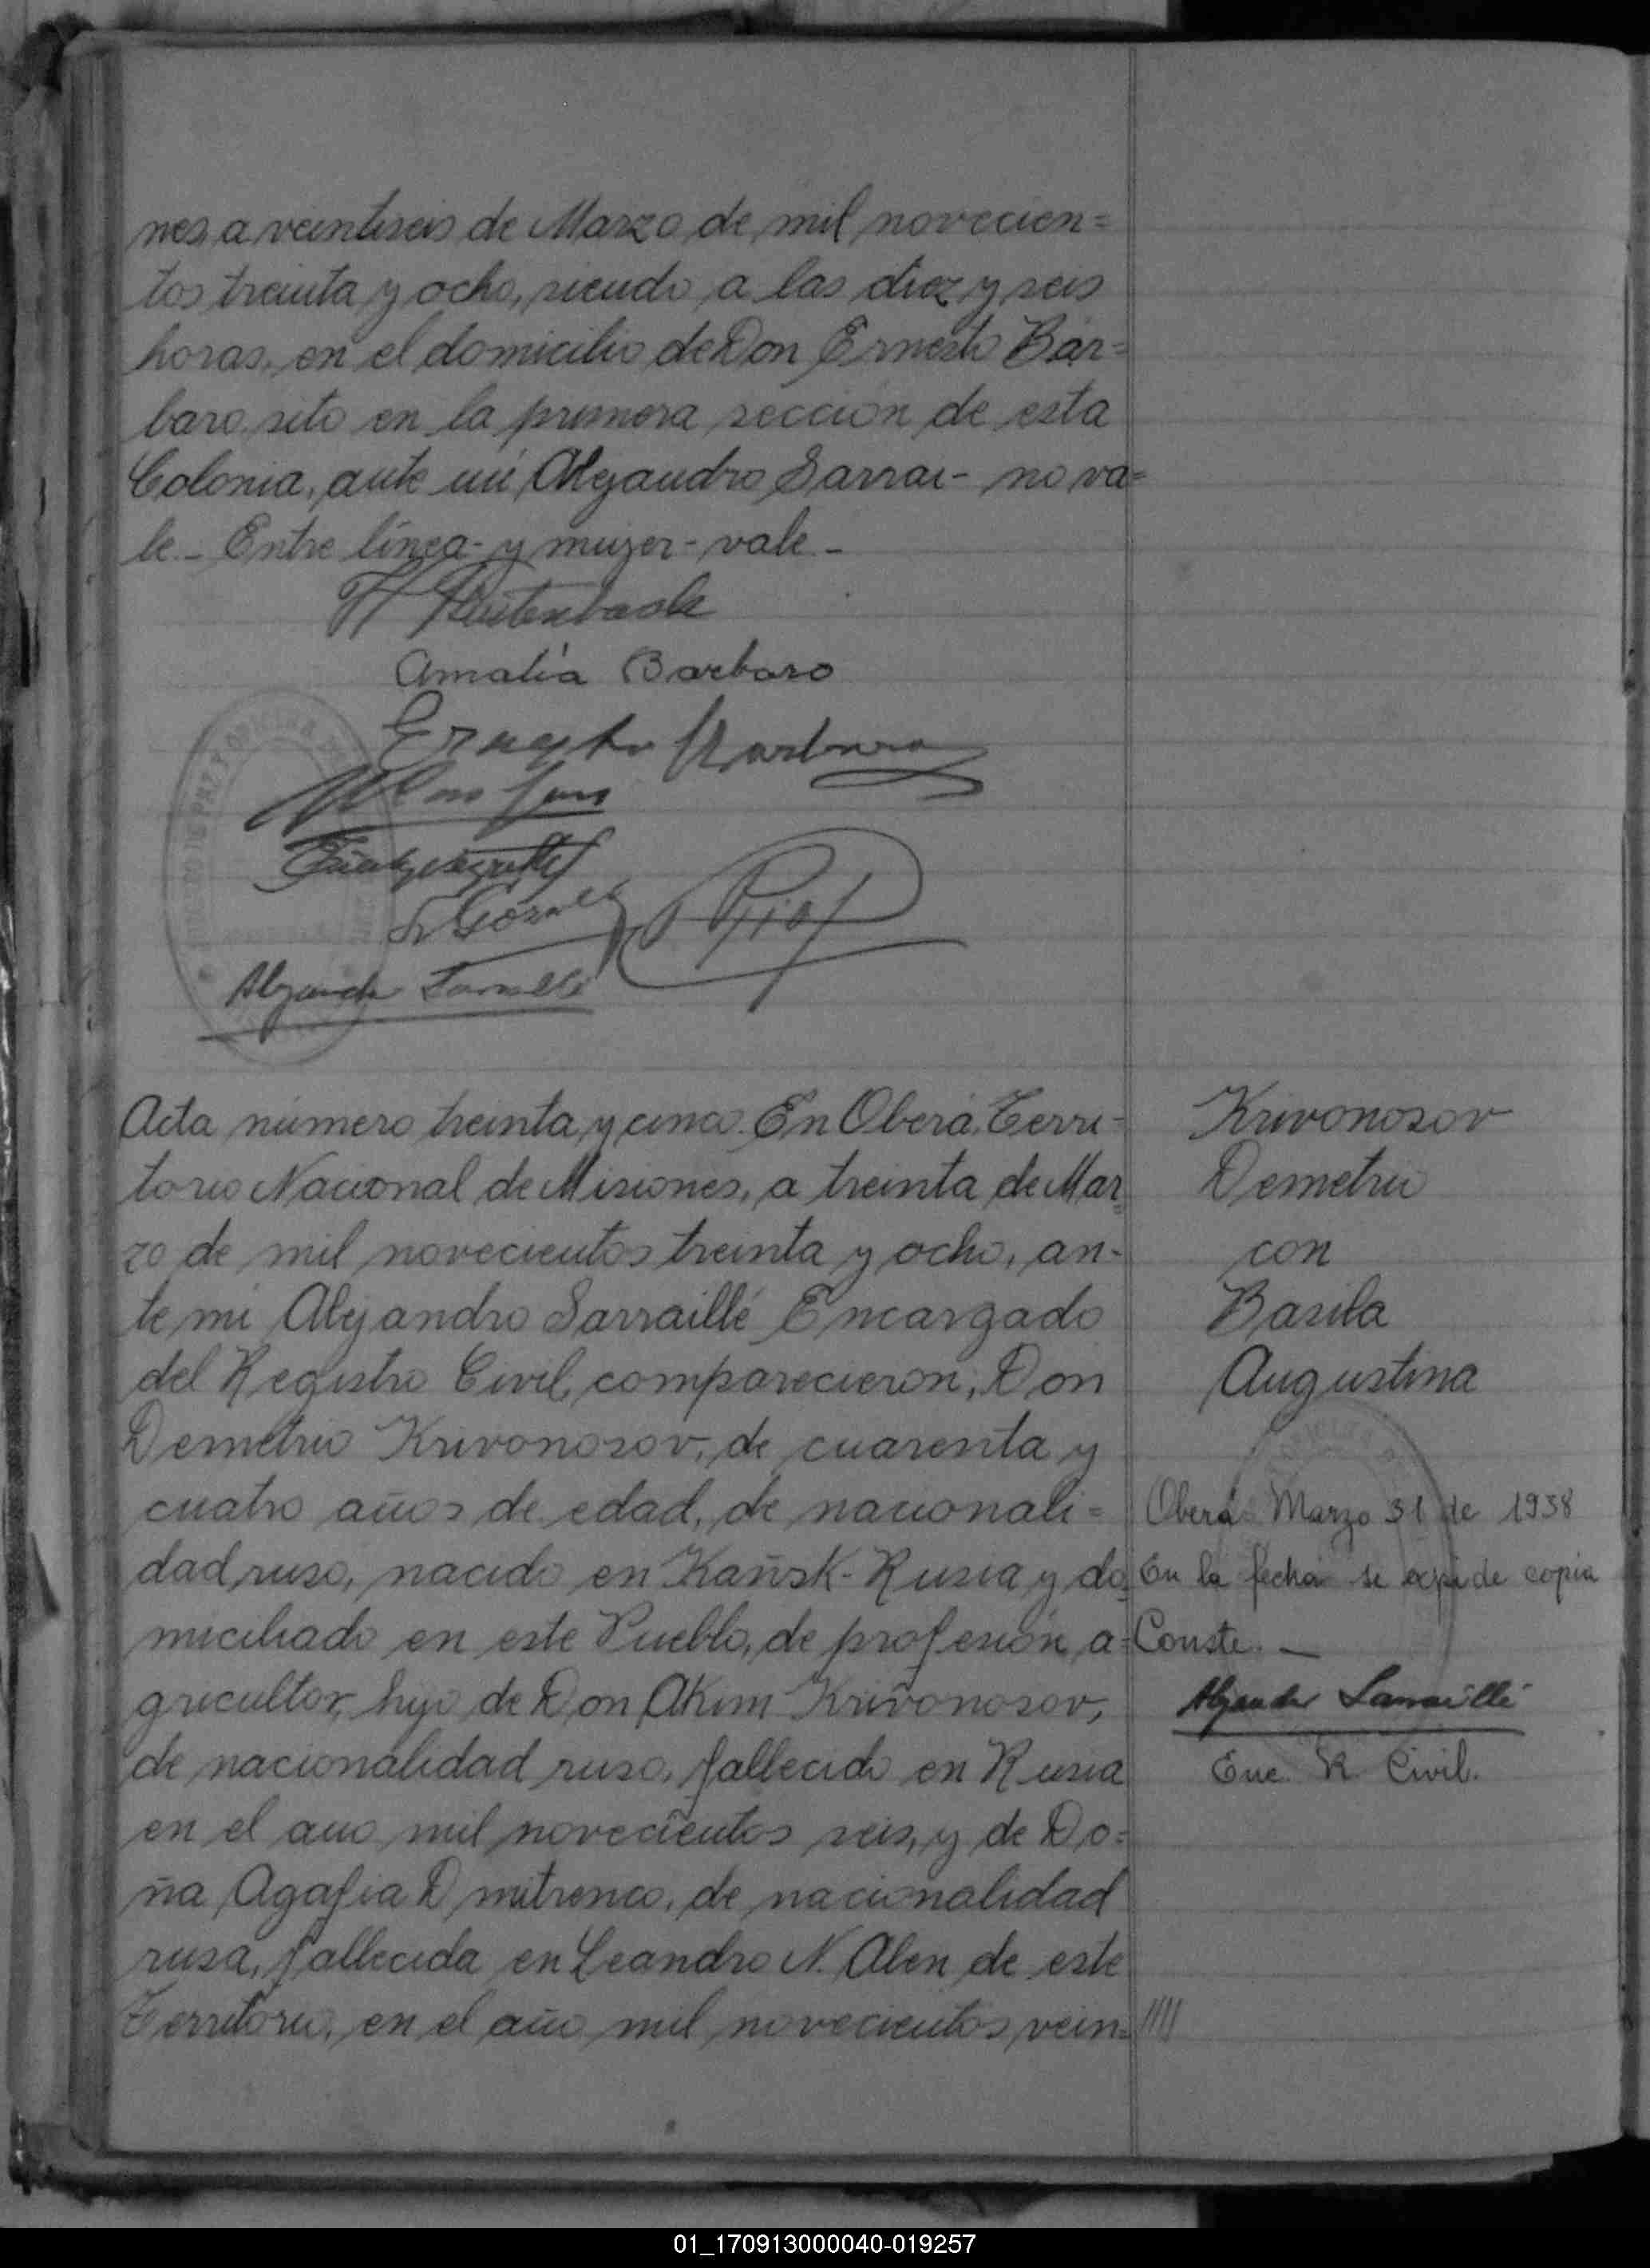 nes, a veintiseis de Marzo de mil novecien=
tos treinta y ocho, siendo a las diez y seis
horas, en el domicilio de Don Ernesto Bár=
baro sito en la primera sección de esta
Colonia, ante mi Alejandro Sarrai- no va=
le.- Entre línea- y mujer- vale.-
Amalia Barbaro
Ernesto Barbaro
Alejandro Sarraillé
Acta número treinta y cinco. En Oberá, Terri=
torio Nacional de Misiones, a treinta de Mar=
zo de mil novecientos treinta y ocho, an-
te mi Alejandro Sarraillé Encargado
del Registro Civil, comparecieron, Don
Demetrio Krivonosov, de cuarenta y
cuatro años de edad, de nacionali=
dad ruso, nacido en Kañsk- Rusia y do=
miciliado en este Pueblo, de profesión a=
gricultor, hijo de Don Akim Krivonosov,
de nacionalidad ruso, fallecido en Rusia
en el año mil novecientos seis, y de Do=
ña Agafia Dmitrenco, de nacionalidad
rusa, fallecida en Leandro N. Alen de este
Territorio, en el año mil novecientos vein= ////
Krivonosov
Demetrio
con
Basila
Augustina
Oberá Marzo 31 de 1938
En la fecha se expide copia
Conste.-
Alejandro Sarraillé
Enc. R. Civil.
01_170913000040-019257